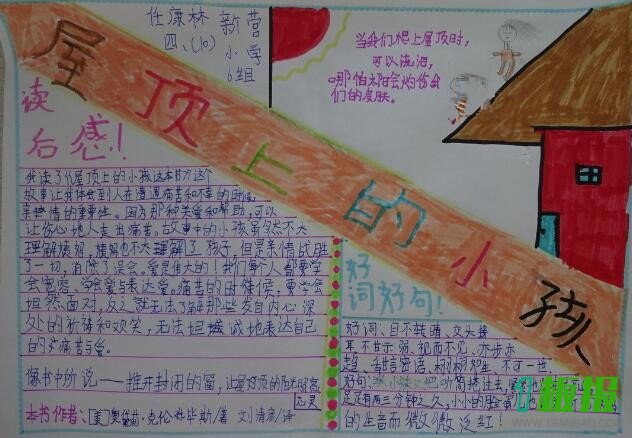 任濠林 新营
四、(10) 小学
6组
屋顶上的小孩
当我们爬上屋顶时,
可以流泪,
哪怕太阳会灼伤我
们的皮肤。
读
后感!
我读了《屋顶上的小孩》这本书
故事让我体会到人在遭遇痛苦和不幸的时候
亲情的重要性。因为那种关爱和帮助,可以
让伤心地人走出痛苦。故事中的小孩虽然不太
理解姨妈,姨妈也不太理解了孩子,但是亲情战胜
了一切,消除了误会。爱是伟大的!我们每个人都要学
会宽容、学会爱与表达爱。痛苦的时候,要学会
坦然面对,反之就无法了解那些发自内心深
处的祈祷和欢笑,无法坦诚地表达自己
的痛苦与爱。
像书中所说——推开封闭的窗,让屋顶的阳光照亮
心灵
本书作者:[美]奥黛莉·克伦毕斯/著 刘清彦/译
好
词好句!
好词、目不转睛、交头接
耳、不甘示弱、视而不见、亦步亦
趋、甜言蜜语、栩栩如生、不可一世
好句:把听筒接过去,
足足有两三分钟之久,小小的脸
的生音而微微泛红!
板报
WWW.1BANBAO.COM